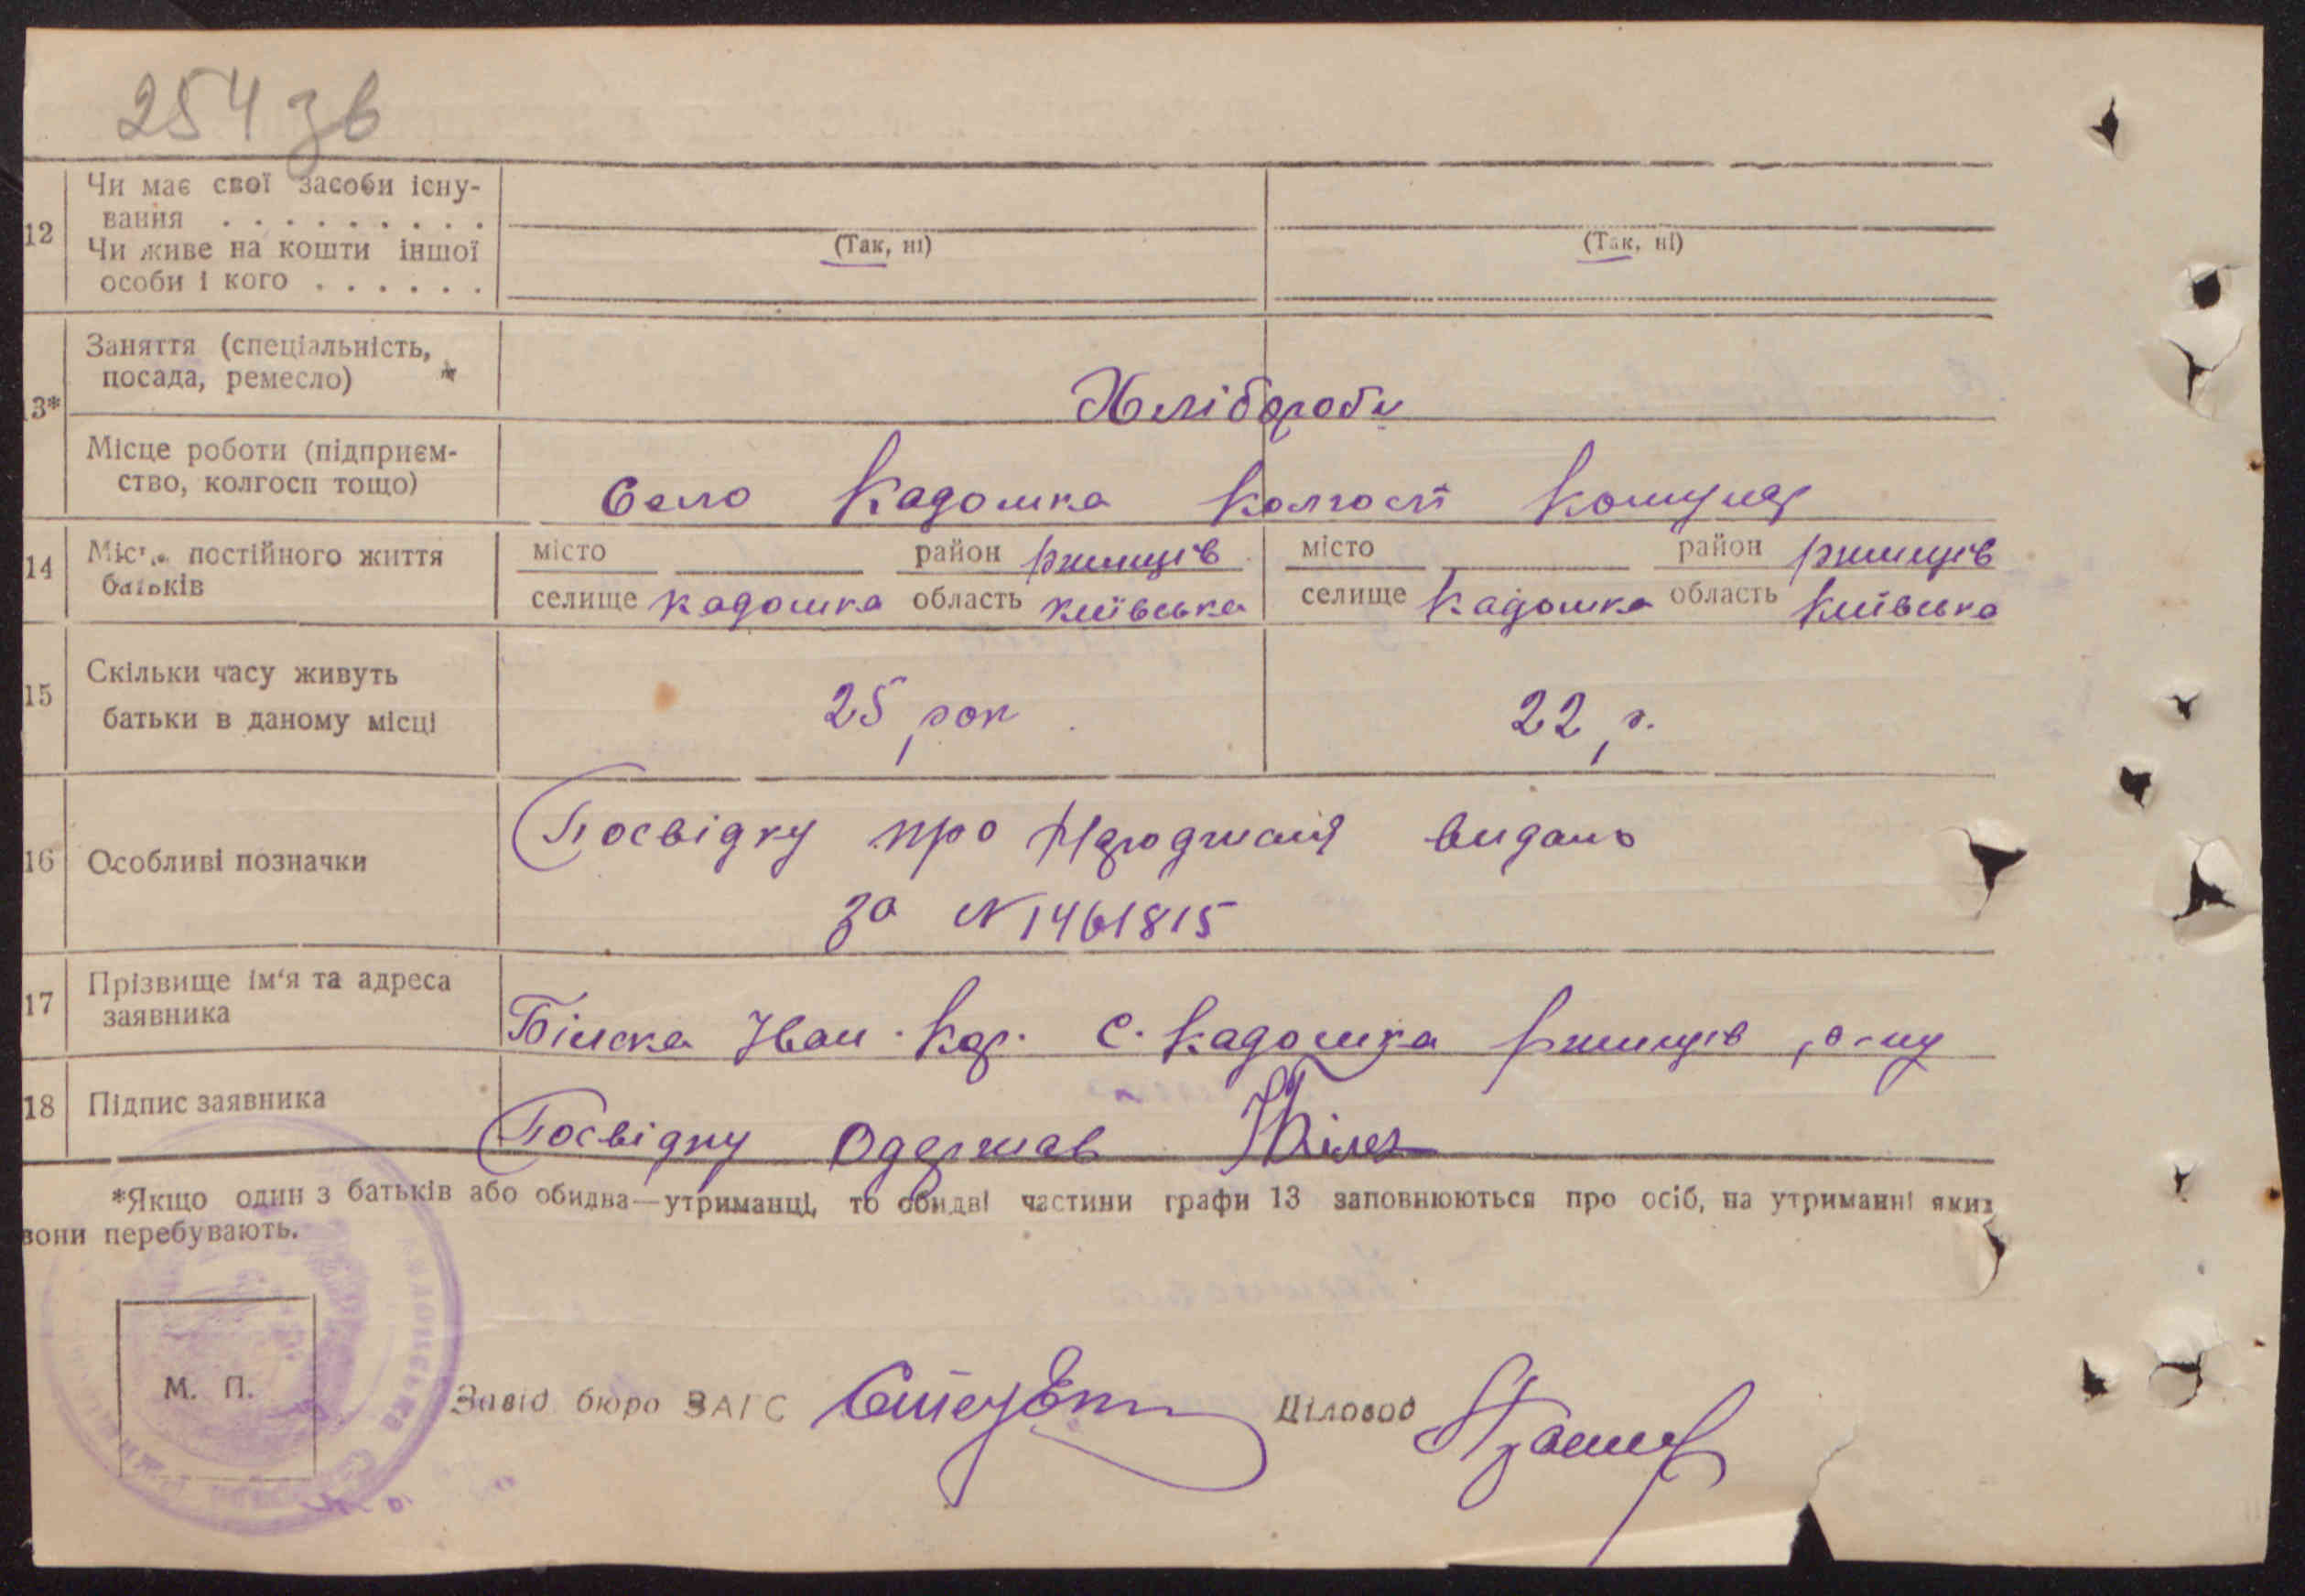 254 зв
12 Чи має свої засоби існу-
вання . . . . . . . . .
Чи живе на кошти іншої
особи і кого . . . . . .
(Так, ні) (Так, ні)
13* Заняття (спеціальність,
посада, ремесло)
Хлібороби
Місце роботи (підприєм-
ство, колгосп тощо)
Село Кадомка Колгосп Комунар
14 Місце постійного життя
батьків
місто район Ржищів місто район Ржищів
селище Кадомка область Київська селище Кадомка область Київська
15 Скільки часу живуть
батьки в даному місці
25 рок 22 р.
16 Особливі позначки
Посвідку про Народження видано
за № 1461815
17 Прізвище ім'я та адреса
заявника
Іван Кар. с. Кадомка Ржищів
18 Підпис заявника
Посвідку Одержав
*Якщо один з батьків або обидва—утриманці, то обидві частини графи 13 заповнюються про осіб, на утриманні яких
вони перебувають.
М. П.
Завід бюро ЗАГС Діловод